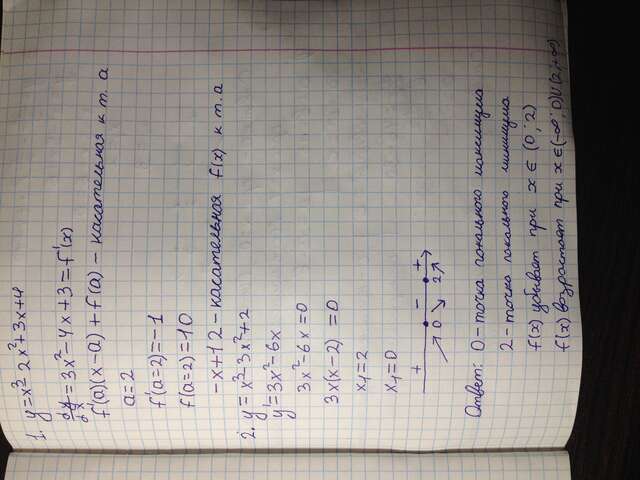 1. y = x³- 2x²+3x+4
dy/dx = 3x²-4x+3 = f'(x)
f'(a)(x-a)+f(a) - касательная к т. а
a=2
f'(a=2)=-1
f(a=2)=10
-x+12-касательная f(x) к т.а
2. y=x³-3x²+2
y'=3x²-6x
3x²-6x=0
3x(x-2)=0
x₁=2
x₁=0
+ - +
0 2
Ответ: 0-точка локального максимума
2-точка локального минимума
f(x) убывает при x ∈ (0; 2)
f(x) возрастает при x ∈(-∞; 0)∪(2;+∞)